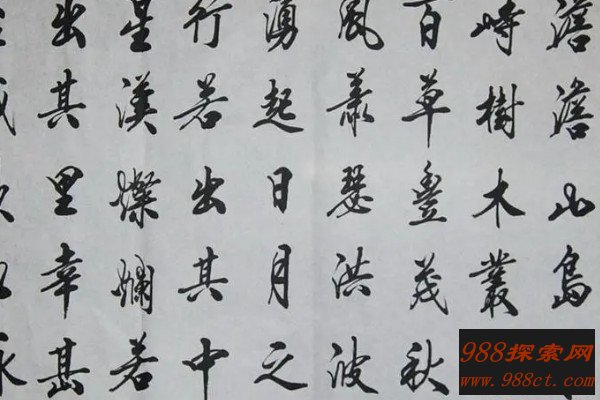 澹澹山島
峙樹木叢
百草豐茂秋
風蕭瑟洪波
湧起日月之
行若出其中
星漢燦爛若
出其里幸甚
988探索网
www.988ct.com